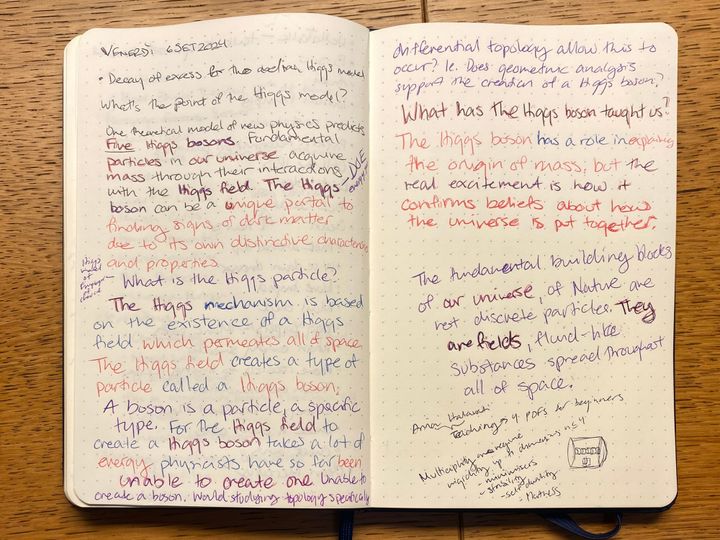 VENERDÌ 6SET2024
• Decay of excess for the Higgs model
What's the point of the Higgs model?
One theoretical model of new physics predicts
Five Higgs bosons. Fundamental
particles in our universe acquire
mass through their interactions
with the Higgs field. The Higgs
boson can be a unique portal to
finding signs of dark matter
due to its own distinctive characteristics
and properties.
Higgs
model
of
– What is the Higgs particle?
The Higgs mechanism is based
on the existence of a Higgs
field which permeates all of space.
The Higgs field creates a type of
particle called a Higgs boson.
A boson is a particle, a specific
type. For the Higgs field to
create a Higgs boson takes a lot of
energy physicists have so far been
unable to create one Unable to
create a boson. Would studying topology specifically
differential topology allow this to
occur? Ie. Does geometric analysis
support the creation of a Higgs boson?
What has the Higgs boson taught us?
The Higgs boson has a role in explaining
the origin of mass, but the
real excitement is how it
confirms beliefs about how
the universe is put together.
The fundamental building blocks
of our universe, of Nature are
not discrete particles. They
are fields, fluid-like
substances spread throughout
all of space.
Teaching 4 PDFs for beginners
Multiplicity one regime
rigidity up to dimensions n≤4
- minimisers
- self-duality